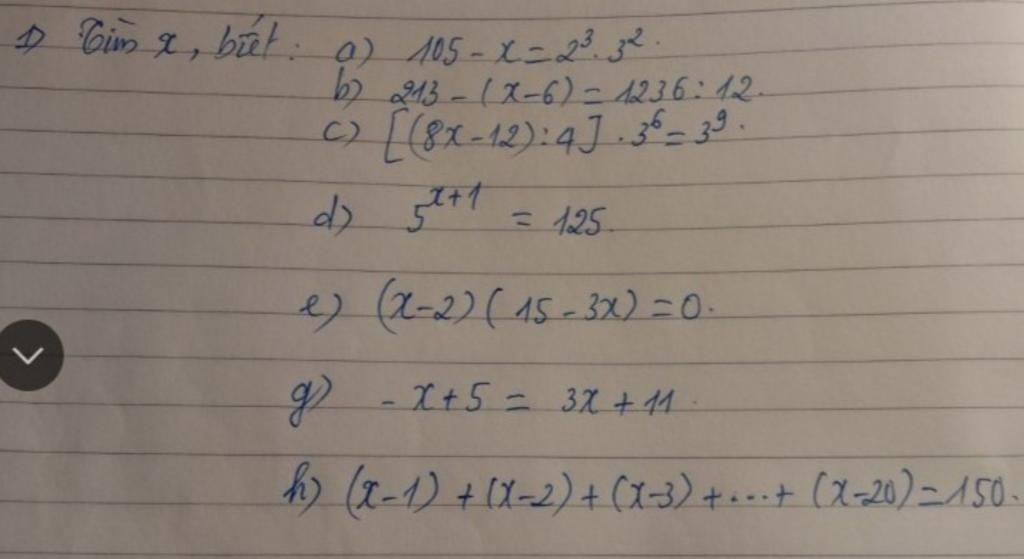 1) Tìm x, biết: a) 105 - x = 2³ . 3² .
b) 213 - (x - 6) = 1236 : 12.
c) [(8x - 12) : 4] . 3⁶ = 3⁹ .
d) 5ˣ⁺¹ = 125.
e) (x - 2)(15 - 3x) = 0.
g) - x + 5 = 3x + 11.
h) (x - 1) + (x - 2) + (x - 3) + ... + (x - 20) = 150.